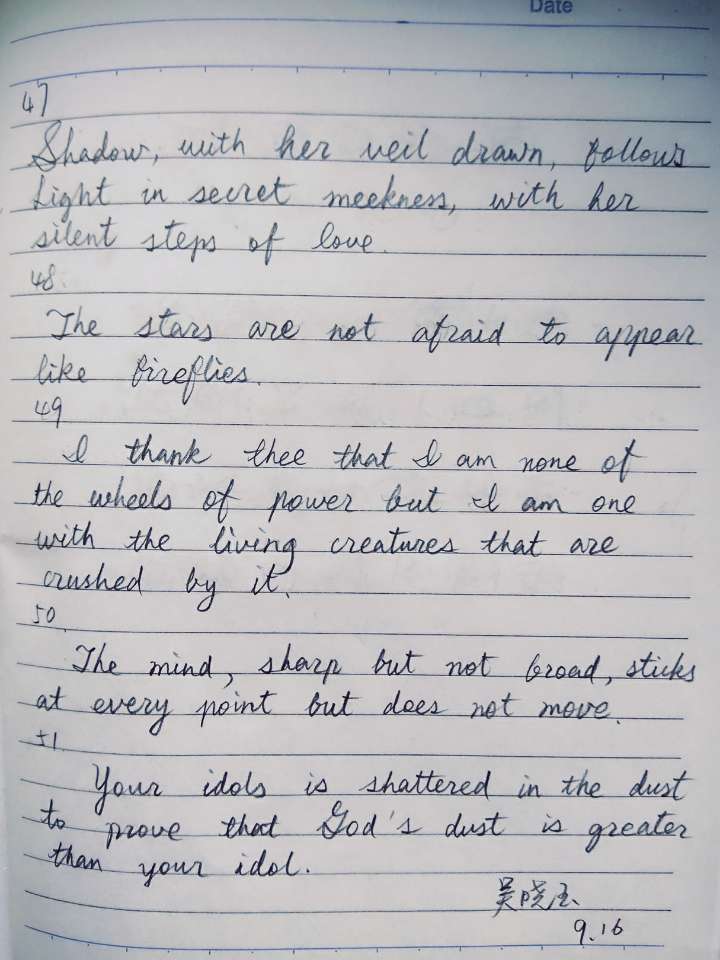 Date
47
Shadow, with her veil drawn, follows
Light in secret meekness, with her
silent steps of love.
48.
The stars are not afraid to appear
like fireflies.
49
I thank thee that I am none of
the wheels of power but I am one
with the living creatures that are
crushed by it.
50
The mind, sharp but not broad, sticks
at every point but does not move.
51
Your idols is shattered in the dust
to prove that God's dust is greater
than your idol.
吴晓玉
9.16